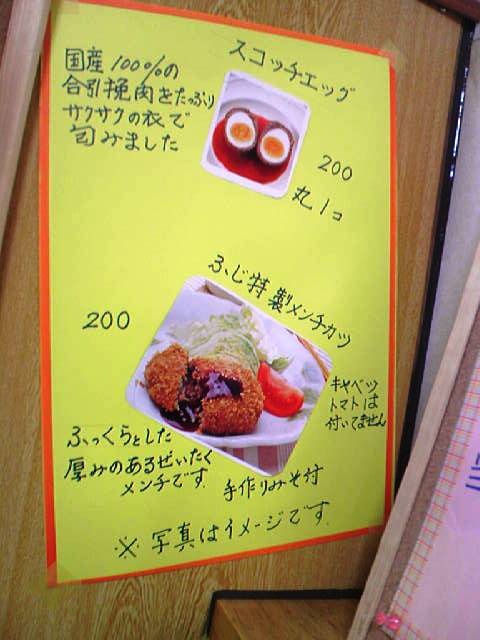 スコッチエッグ
国産100%の
合引挽肉をたっぷり
サクサクの衣で
包みました
200
丸1コ
ふじ特製メンチカツ
200
キャベツ
トマトは
付いてません
ふっくらとした
厚みのあるぜいたく
メンチです
手作りみそ付
※写真はイメージです